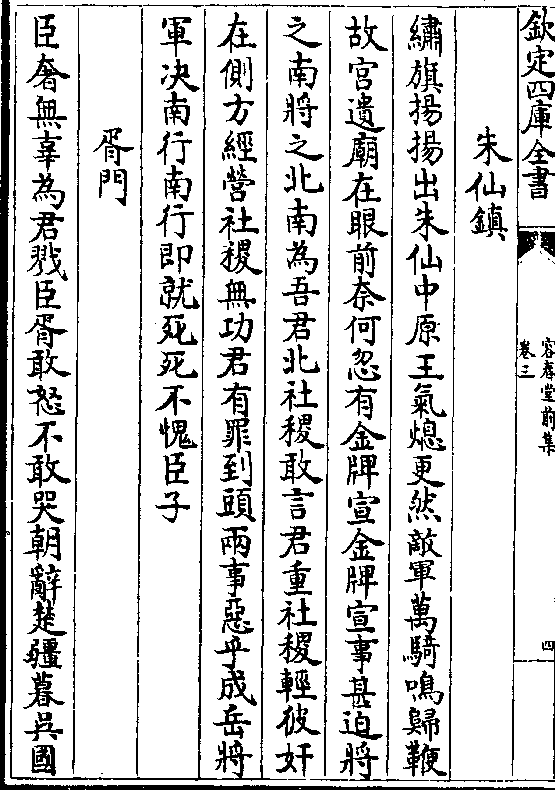 欽定四庫全書
容春堂前集
卷三
四
朱仙鎮
繡旗揚揚出朱仙中原王氣熄更然敵軍萬騎鳴歸鞭
故宮遺廟在眼前奈何忽有金牌宣金牌宣事甚迫將
之南將之北南為吾君北社稷敢言君重社稷輕彼奸
在側方經營社稷無功君有罪到頭兩事惡乎成岳將
軍決南行南行即就死死不愧臣子
胥門
臣奢無辜為君戮臣胥敢怒不敢哭朝辭楚疆暮吳國